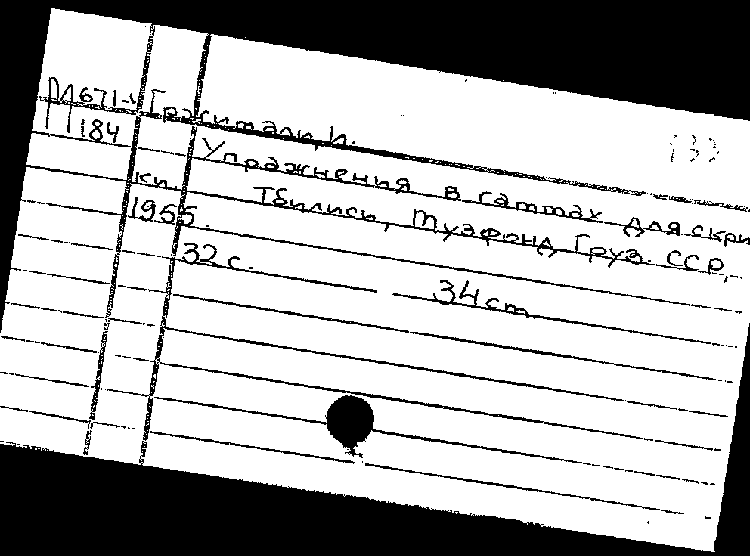 М671-1 Гржимали, И.
184
Упражнения в гаммах для скри
ки. Тбилиси, Музфонд Груз. ССР,
1955.
32 с. 34 cm